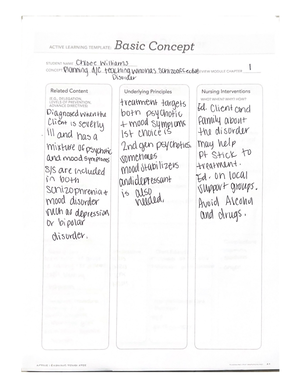 ACTIVE LEARNING TEMPLATE: Basic Concept
STUDENT NAME Chloee Williams
CONCEPT Planning D/C teaching who has schizoaffective disorder
REVIEW MODULE CHAPTER 1
Related Content
(E.G., DELEGATION, LEVELS OF PREVENTION, ADVANCE DIRECTIVES)
Diagnosed when the
client is severely
ill and has a
mixture of psychotic
and mood symptoms
S/S are included
in both
Schizophrenia +
mood disorder
such as depression
or bipolar
disorder.
Underlying Principles
treatment targets
both psychotic
+ mood symptoms
1st choice is
2nd gen psychotics
sometimes
mood stabilizers
antidepressant
is also
needed.
Nursing Interventions
WHO? WHEN? WHY? HOW?
Ed. Client and
Family about
the disorder
may help
Pt stick to
treatment.
Ed. on local
support groups.
Avoid Alcohol
and drugs.
ACTIVE LEARNING TEMPLATES